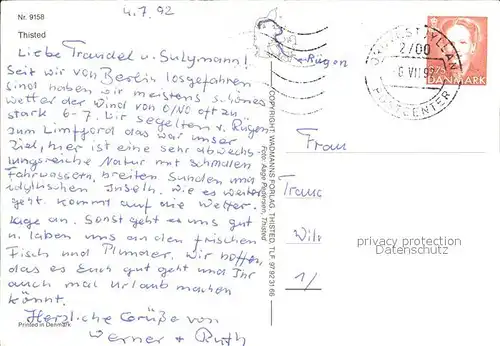 Nr. 9158
4.7.92
Thisted
Liebe Traudel u.
Seit wir von Berlin losgefahren
sind haben wir meistens schönes
Wetter der Wind von O/NO oft zu
stark 6-7. Wir segelten v. Rügen
zum Limfjord das war unser
Ziel, hier ist eine sehr abwechs
lungsreiche Natur mit schmalen
Fahrwassern, breiten Sunden und
idyllischen Inseln. Wie es weiter
geht kommt auf die Wetter-
lage an. Sonst geht es uns gut
u. laben uns an den frischen
Fisch und Plunder. Wir hoffen,
das es Euch gut geht und Ihr
auch mal Urlaub machen
könnt.
Herzliche Grüße von
Werner + Ruth
Printed in Denmark
Rügen
COPYRIGHT: WADMANNS FORLAG, THISTED, TLF. 97 92 31 66
Foto: Aage Pedersen, Thisted
2700
POSTCENTER
3.75
DANMARK
Frau
Trau
Wil
1/
privacy protection
Datenschutz